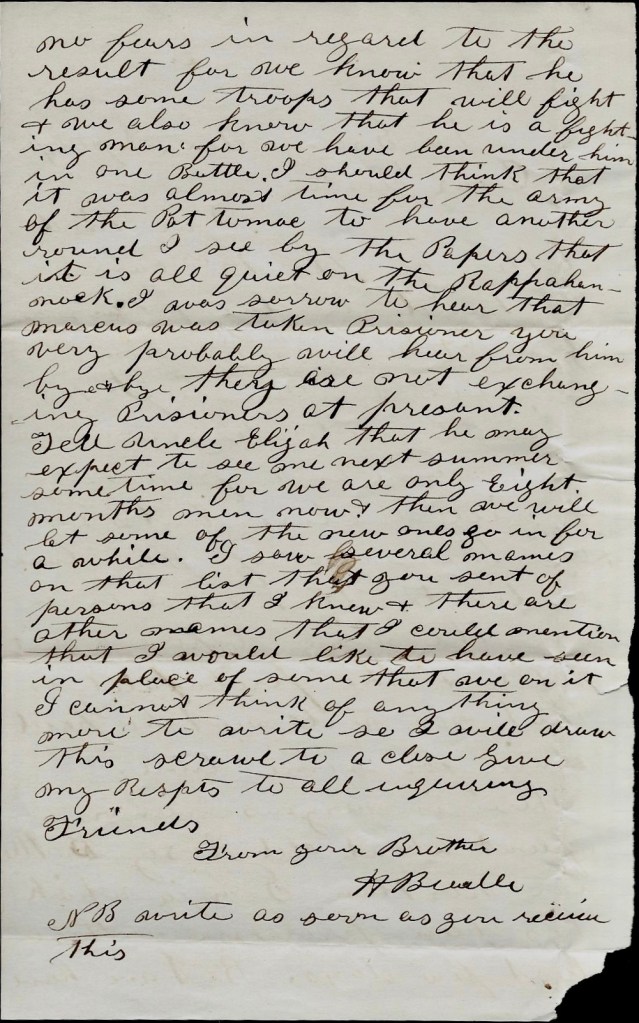 no fears in regard to the
result for we know that he
has some troops that will fight
& we also know that he is a fight-
ing man for we have been under him
in one Battle. I should think that
it was almost time for the army
of the Pottomac to have another
round I see by the Papers that
it is all quiet on the Rappahan-
nock. I was sorrow to hear that
Marcus was taken Prisioner you
very probably will hear from him
by & bye they are not exchang-
ing Prisioners at present.
Tell Uncle Elijah that he may
expect to see me next summer
sometime for we are only Eight
months men now & then we will
let some of the new ones go in for
a while. I saw several names
on that list that you sent of
persons that I knew & there are
other names that I could mention
that I would like to have seen
in place of some that we on it
I cannot think of any thing
more to write so I will draw
this scrawl to a close Give
my Respts to all inquiring
Friends
From your Brother
H
NB write as soon as you receive
this